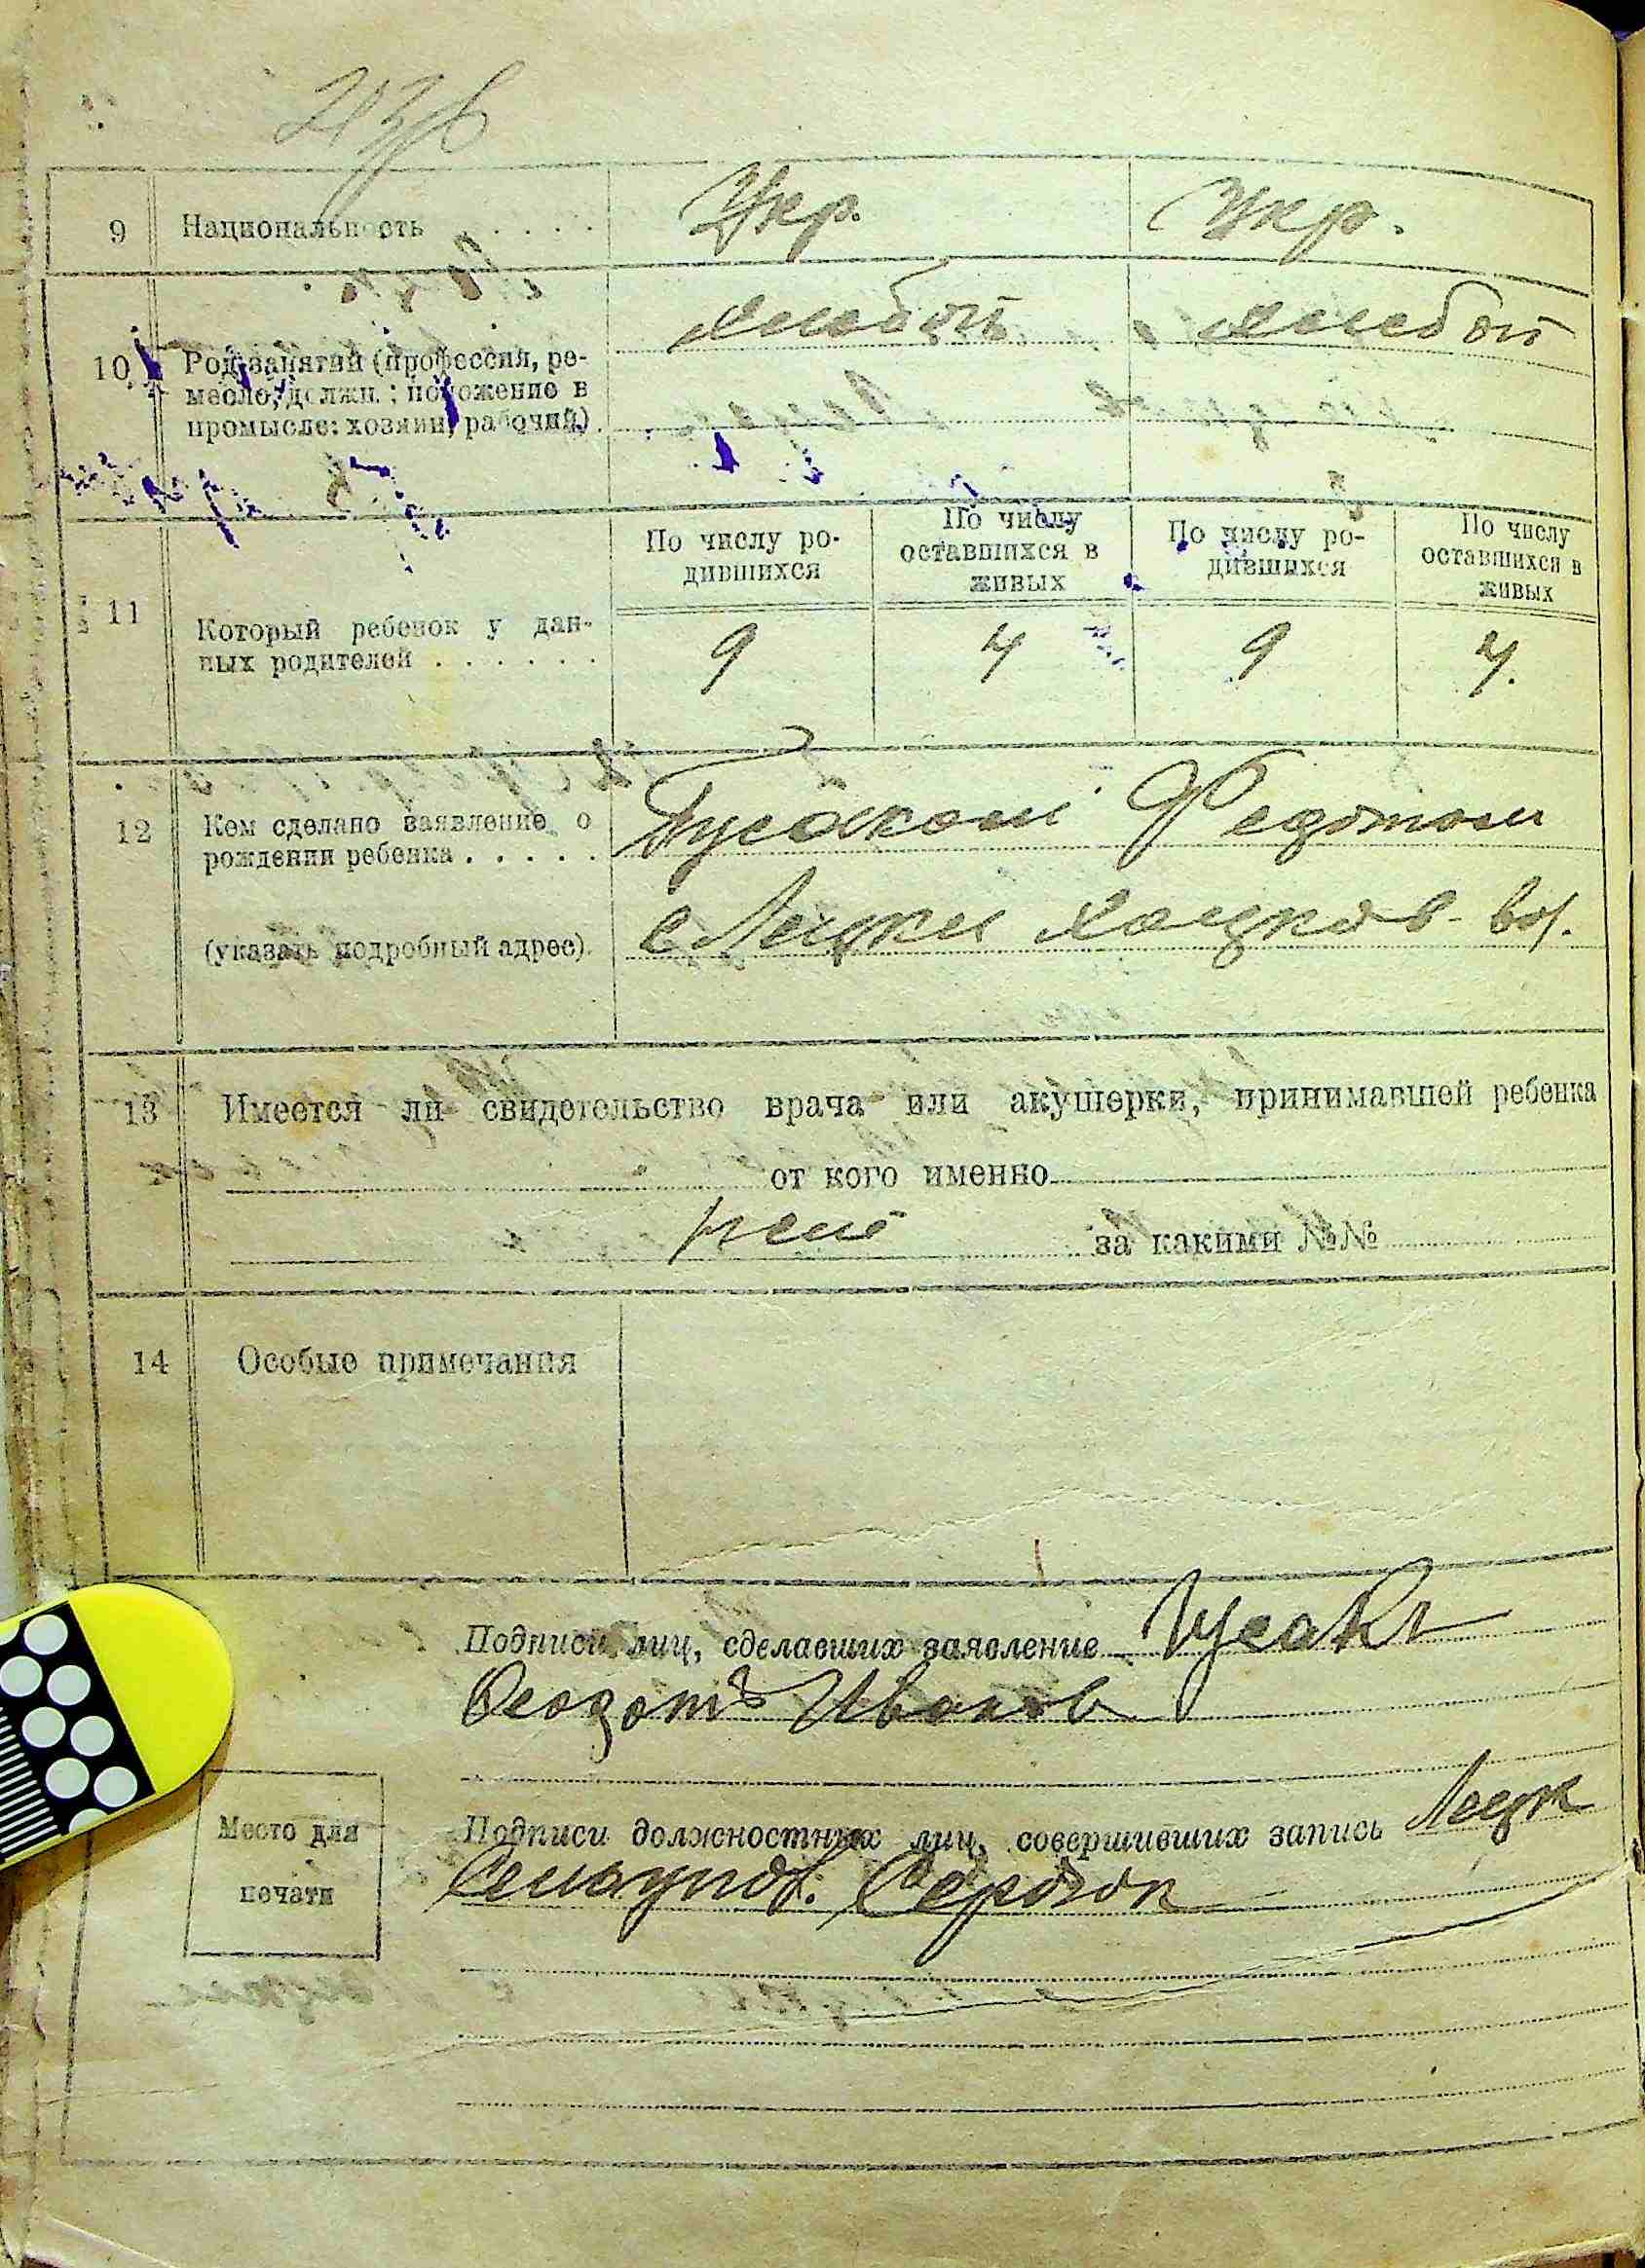 9 Национальность . . . . . Укр. Укр.
10 Род занятий (профессия, ре-
месло, должн.; положение в
промысле: хозяин, рабочий).
хлебоп хлебоп
11 Который ребенок у дан-
ных родителей . . . . . . .
По числу ро-
дившихся
По числу
оставшихся в
живых
По числу ро-
дившихся
По числу
оставшихся в
живых
9 4 9 4.
12 Кем сделано заявление о
рождении ребенка . . . . .
(указать подробный адрес).
Гусаком Федотом
с Лецки хоцков- вол.
13 Имеется ли свидетельство врача или акушерки, принимавшей ребенка
от кого именно
нет за какими №№
14 Особые примечания
Подписи лиц, сделавших заявление Гусакъ
Феодотъ Иванов
Место для
печати
Подписи должностных лиц, совершивших запись Лецк
Сердюк